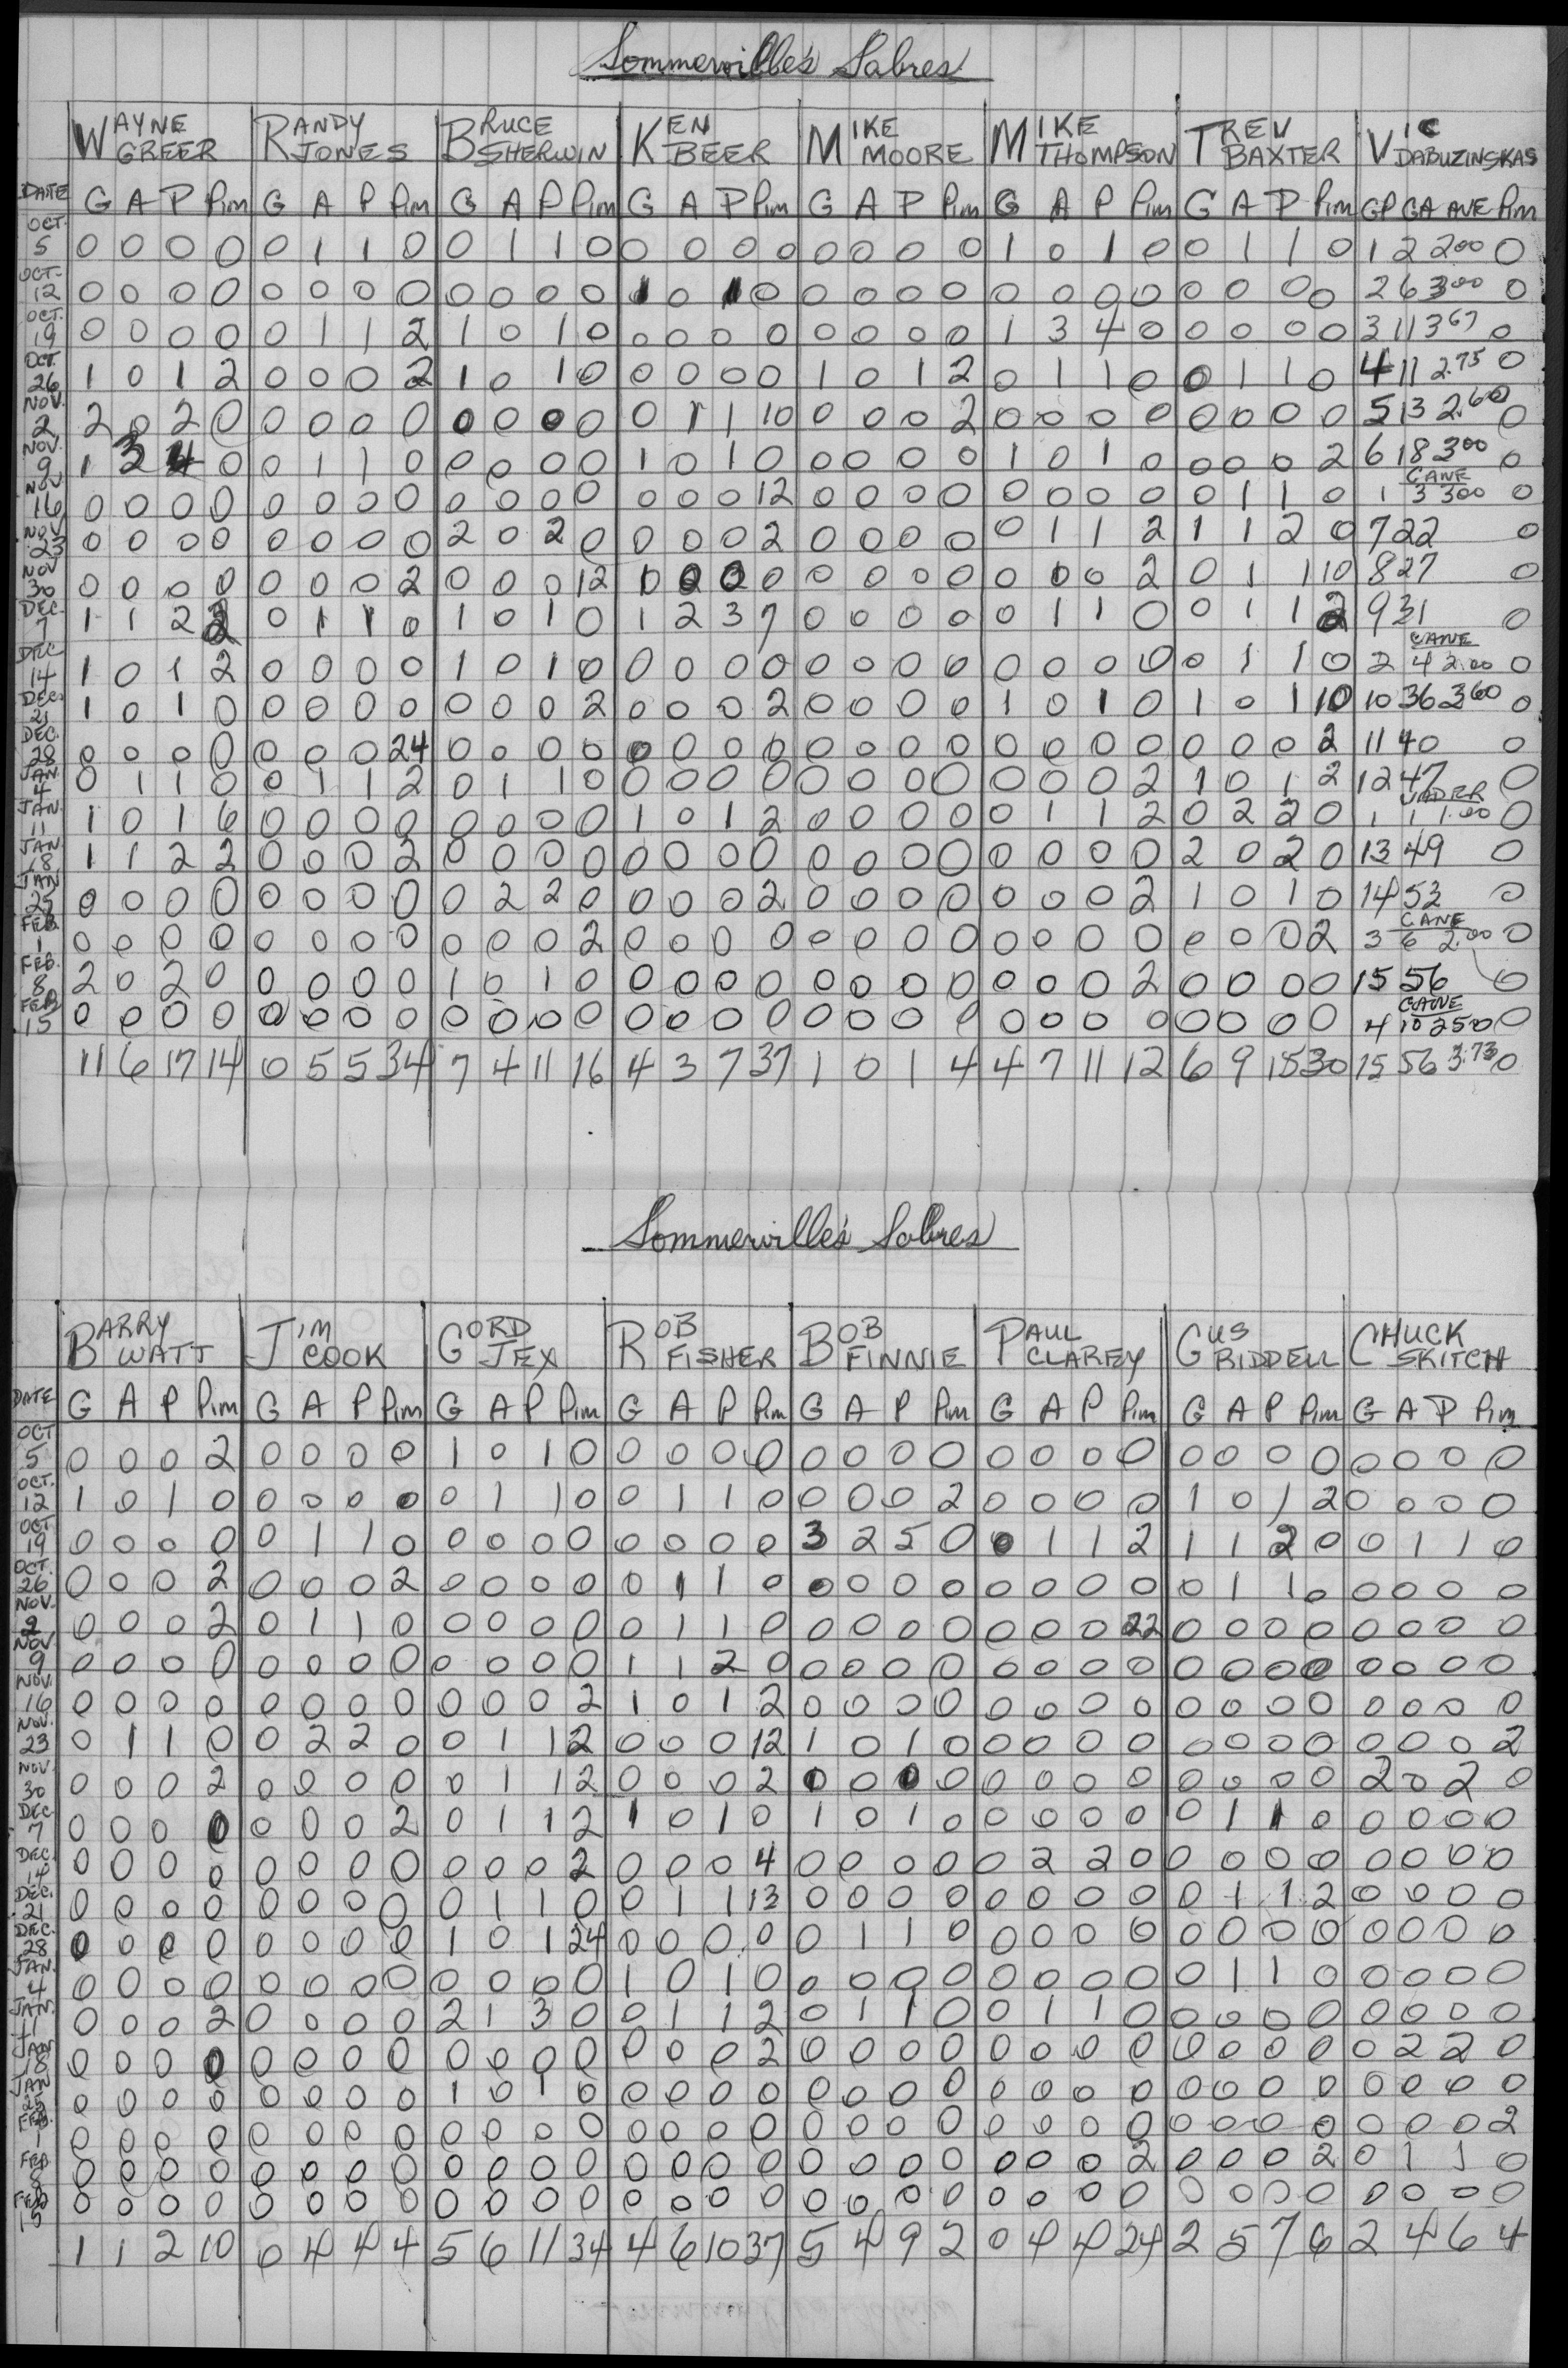 Sommerville's Sabres
WAYNE GREER RANDY JONES BRUCE SHERWIN KEN BEER MIKE MOORE MIKE THOMPSON TREV BAXTER VIC DABUZINSKAS
DATE G A P Pim G A P Pim G A P Pim G A P Pim G A P Pim G A P Pim G A P Pim GP GA AVE Pim
OCT. 5 0 0 0 0 0 1 1 0 0 1 1 0 0 0 0 0 0 0 0 0 1 0 1 0 0 1 1 0 1 2 2.00 0
OCT. 12 0 0 0 0 0 0 0 0 0 0 0 0 1 0 1 0 0 0 0 0 0 0 0 0 0 0 0 0 2 6 3.00 0
OCT. 19 0 0 0 0 0 1 1 2 1 0 1 0 0 0 0 0 0 0 0 0 1 3 4 0 0 0 0 0 3 11 3.67 0
OCT. 26 1 0 1 2 0 0 0 2 1 0 1 0 0 0 0 0 1 0 1 2 0 1 1 0 0 1 1 0 4 11 2.75 0
NOV. 2 2 0 2 0 0 0 0 0 0 0 0 0 0 1 1 10 0 0 0 2 0 0 0 0 0 0 0 0 5 13 2.60 0
NOV. 9 1 3 4 0 0 1 1 0 0 0 0 0 1 0 1 0 0 0 0 0 1 0 1 0 0 0 0 2 6 18 3.00 0
NOV 16 0 0 0 0 0 0 0 0 0 0 0 0 0 0 0 12 0 0 0 0 0 0 0 0 0 1 1 0 CANE 1 3 3.00 0
NOV 23 0 0 0 0 0 0 0 0 2 0 2 0 0 0 0 2 0 0 0 0 0 1 1 2 1 1 2 0 7 22 0
NOV 30 0 0 0 0 0 0 0 2 0 0 0 12 1 0 0 0 0 0 0 0 0 0 0 2 0 1 1 10 8 27 0
DEC. 7 1 1 2 2 0 1 1 0 1 0 1 0 1 2 3 7 0 0 0 0 0 1 1 0 0 1 1 2 9 31 0
DEC 14 1 0 1 2 0 0 0 0 1 0 1 0 0 0 0 0 0 0 0 0 0 0 0 0 0 1 1 0 CANE 2 4 2.00 0
DEC. 21 1 0 1 0 0 0 0 0 0 0 0 2 0 0 0 2 0 0 0 0 1 0 1 0 1 0 1 10 10 36 3.60 0
DEC. 28 0 0 0 0 0 0 0 24 0 0 0 0 0 0 0 0 0 0 0 0 0 0 0 0 0 0 0 2 11 40 0
JAN. 4 0 1 1 0 0 1 1 2 0 1 1 0 0 0 0 0 0 0 0 0 0 0 0 2 1 0 1 2 12 47 0
JAN. 11 1 0 1 6 0 0 0 0 0 0 0 0 1 0 1 2 0 0 0 0 0 1 1 2 0 2 2 0 1 1 1.00 0
JAN 18 1 1 2 2 0 0 0 2 0 0 0 0 0 0 0 0 0 0 0 0 0 0 0 0 2 0 2 0 13 49 0
JAN 25 0 0 0 0 0 0 0 0 0 2 2 0 0 0 0 2 0 0 0 0 0 0 0 2 1 0 1 0 14 53 0
FEB. 1 0 0 0 0 0 0 0 0 0 0 0 2 0 0 0 0 0 0 0 0 0 0 0 0 0 0 0 2 CANE 3 6 2.00 0
FEB. 8 2 0 2 0 0 0 0 0 1 0 1 0 0 0 0 0 0 0 0 0 0 0 0 2 0 0 0 0 15 56 0
FEB 15 0 0 0 0 0 0 0 0 0 0 0 0 0 0 0 0 0 0 0 0 0 0 0 0 0 0 0 0 CANE 4 10 2.50 0
11 6 17 14 0 5 5 34 7 4 11 16 4 3 7 37 1 0 1 4 4 7 11 12 6 9 15 30 15 56 3.73 0
Sommerville's Sabres
BARRY WATT JIM COOK GORD JEX ROB FISHER BOB FINNIE PAUL CLAREY GUS RIDDELL CHUCK SKITCH
DATE G A P Pim G A P Pim G A P Pim G A P Pim G A P Pim G A P Pim G A P Pim G A P Pim
OCT 5 0 0 0 2 0 0 0 0 1 0 1 0 0 0 0 0 0 0 0 0 0 0 0 0 0 0 0 0 0 0 0 0
OCT. 12 1 0 1 0 0 0 0 0 0 1 1 0 0 1 1 0 0 0 0 2 0 0 0 0 1 0 1 2 0 0 0 0
OCT 19 0 0 0 0 0 1 1 0 0 0 0 0 0 0 0 0 3 2 5 0 0 1 1 2 1 1 2 0 0 1 1 0
OCT. 26 0 0 0 2 0 0 0 2 0 0 0 0 0 1 1 0 0 0 0 0 0 0 0 0 0 1 1 0 0 0 0 0
NOV. 2 0 0 0 2 0 1 1 0 0 0 0 0 0 1 1 0 0 0 0 0 0 0 0 22 0 0 0 0 0 0 0 0
NOV. 9 0 0 0 0 0 0 0 0 0 0 0 0 1 1 2 0 0 0 0 0 0 0 0 0 0 0 0 0 0 0 0 0
NOV. 16 0 0 0 0 0 0 0 0 0 0 0 2 1 0 1 2 0 0 0 0 0 0 0 0 0 0 0 0 0 0 0 0
NOV. 23 0 1 1 0 0 2 2 0 0 1 1 2 0 0 0 12 1 0 1 0 0 0 0 0 0 0 0 0 0 0 0 2
NOV. 30 0 0 0 2 0 0 0 0 0 1 1 2 0 0 0 2 0 0 0 0 0 0 0 0 0 0 0 0 2 0 2 0
DEC 7 0 0 0 0 0 0 0 2 0 1 1 2 1 0 1 0 1 0 1 0 0 0 0 0 0 1 1 0 0 0 0 0
DEC. 14 0 0 0 0 0 0 0 0 0 0 0 2 0 0 0 4 0 0 0 0 0 2 2 0 0 0 0 0 0 0 0 0
DEC. 21 0 0 0 0 0 0 0 0 0 1 1 0 0 1 1 13 0 0 0 0 0 0 0 0 0 1 1 2 0 0 0 0
DEC. 28 0 0 0 0 0 0 0 0 1 0 1 24 0 0 0 0 0 1 1 0 0 0 0 0 0 0 0 0 0 0 0 0
JAN. 4 0 0 0 0 0 0 0 0 0 0 0 0 1 0 1 0 0 0 0 0 0 0 0 0 0 1 1 0 0 0 0 0
JAN. 11 0 0 0 2 0 0 0 0 2 1 3 0 0 1 1 2 0 1 1 0 0 1 1 0 0 0 0 0 0 0 0 0
JAN 18 0 0 0 0 0 0 0 0 0 0 0 0 0 0 0 2 0 0 0 0 0 0 0 0 0 0 0 0 0 2 2 0
JAN 25 0 0 0 0 0 0 0 0 1 0 1 0 0 0 0 0 0 0 0 0 0 0 0 0 0 0 0 0 0 0 0 0
FEB. 1 0 0 0 0 0 0 0 0 0 0 0 0 0 0 0 0 0 0 0 0 0 0 0 0 0 0 0 0 0 0 0 2
FEB 8 0 0 0 0 0 0 0 0 0 0 0 0 0 0 0 0 0 0 0 0 0 0 0 2 0 0 0 2 0 1 1 0
FEB 15 0 0 0 0 0 0 0 0 0 0 0 0 0 0 0 0 0 0 0 0 0 0 0 0 0 0 0 0 0 0 0 0
1 1 2 10 0 4 4 4 5 6 11 34 4 6 10 37 5 4 9 2 0 4 4 24 2 5 7 6 2 4 6 4